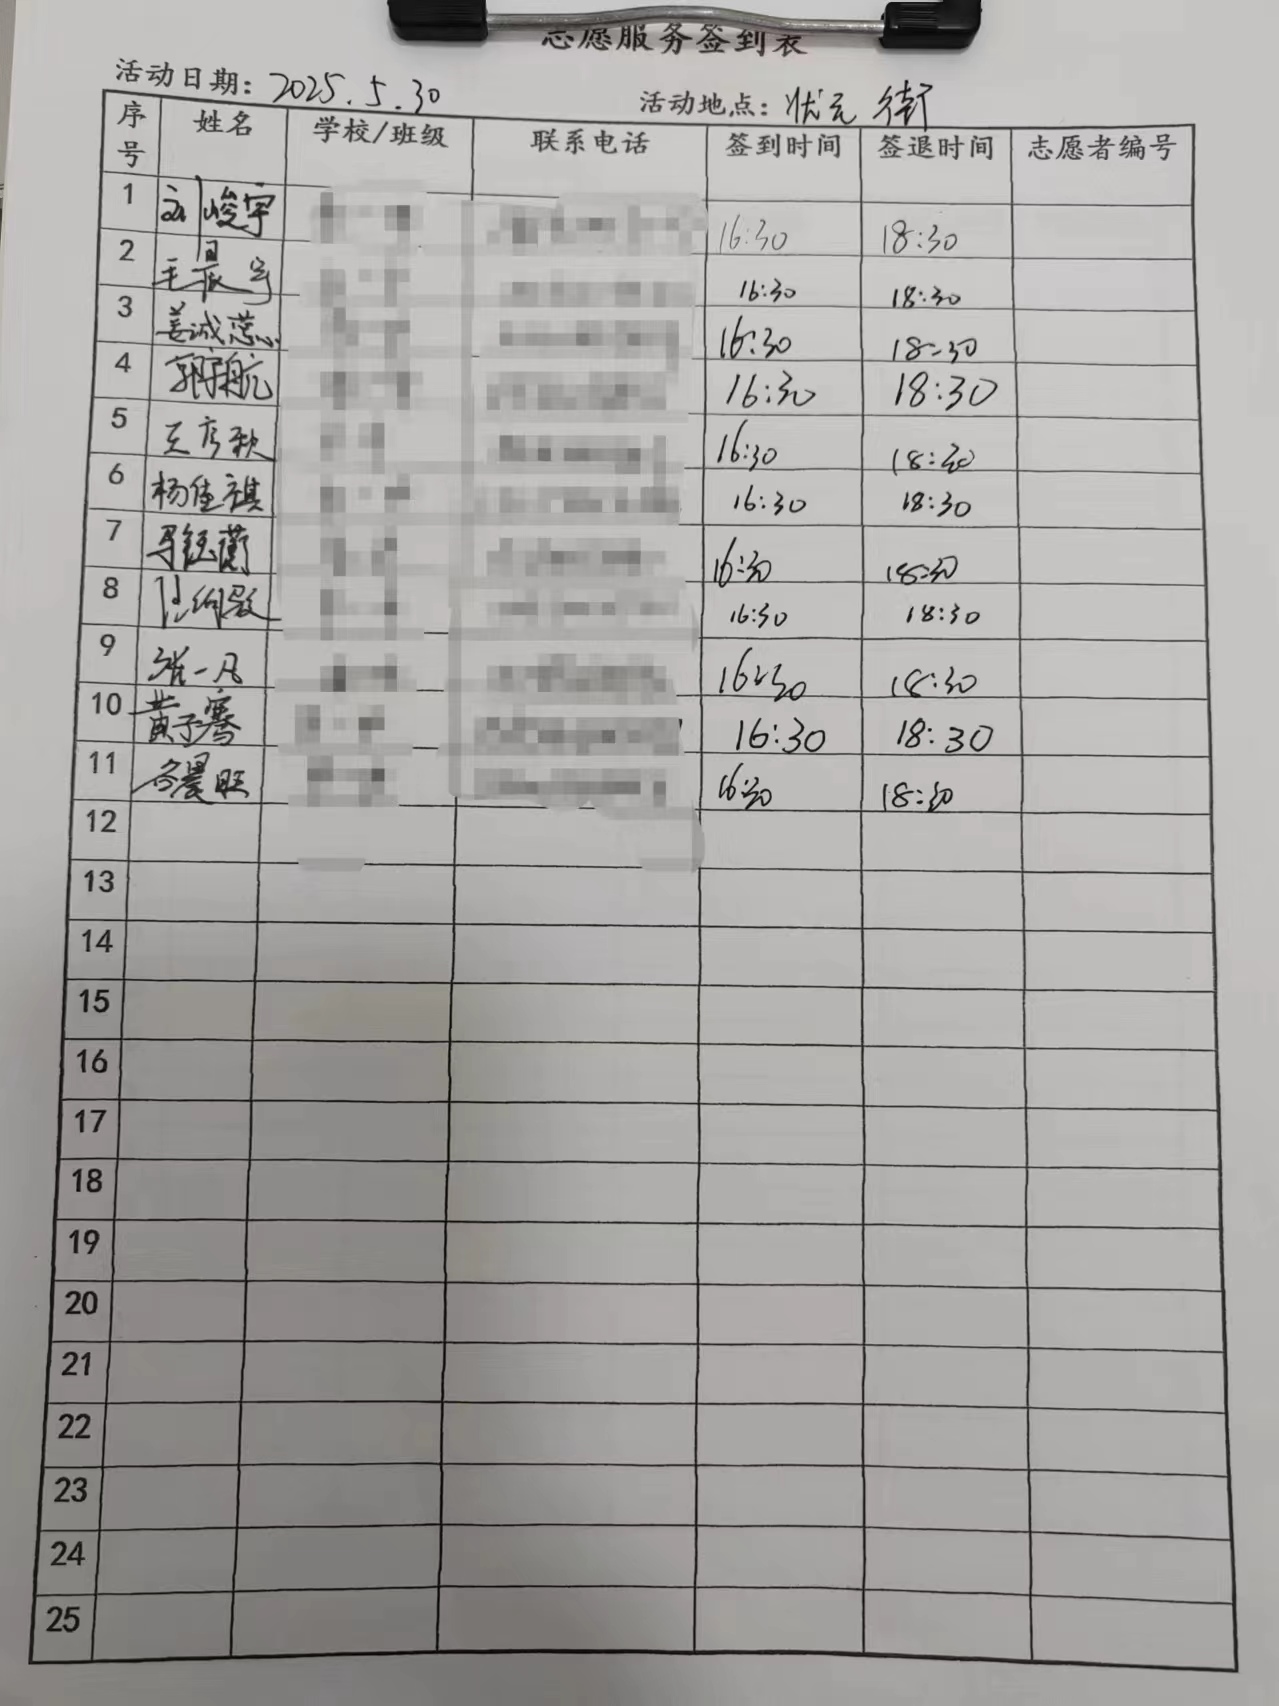 志愿服务签到表
活动日期：2025.5.30 活动地点：状元街
序号 姓名 学校/班级 联系电话 签到时间 签退时间 志愿者编号
1 刘峻宇 16:30 18:30
2 王晨宇 16:30 18:30
3 姜诚蕊 16:30 18:30
4 郭宇航 16:30 18:30
5 王彦秋 16:30 18:30
6 杨佳祺 16:30 18:30
7 16:30 18:30
8 16:30 18:30
9 崔一凡 16:30 18:30
10 黄子骞 16:30 18:30
11 谷晨旺 16:30 18:30
12
13
14
15
16
17
18
19
20
21
22
23
24
25